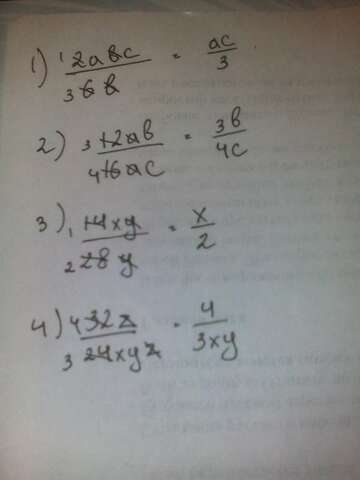 1) 12abc / 36b = ac / 3
2) 3 12ab / 4 16ac = 3b / 4c
3) 1 14xy / 2 28y = x / 2
4) 4 32z / 3 24xyz = 4 / 3xy